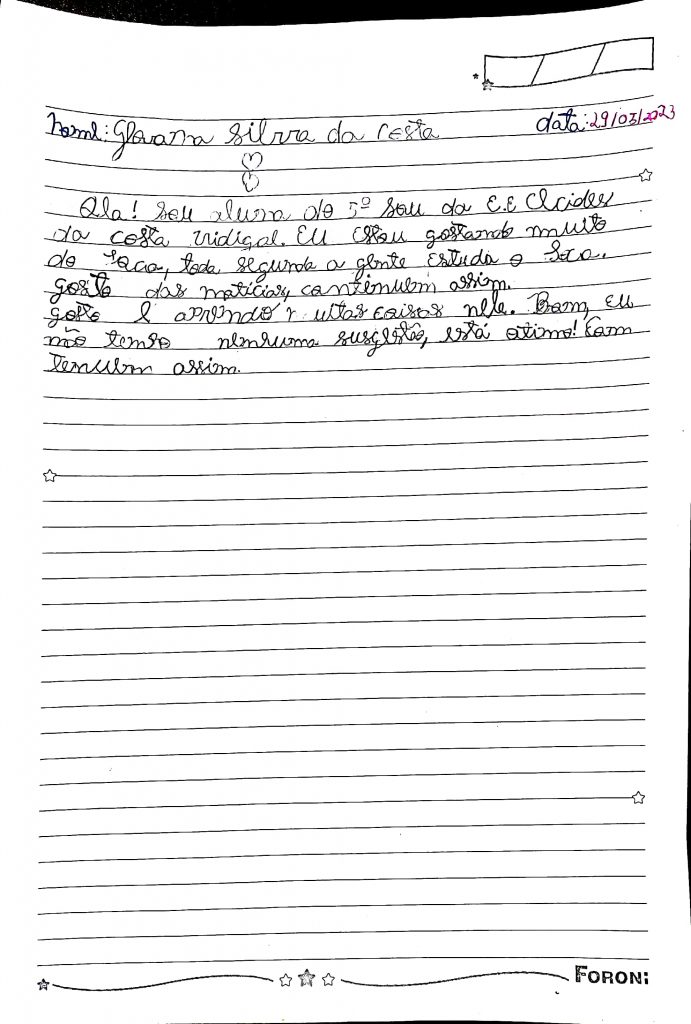 Nome: Giovana Silva da Costa data: 29/03/2023
Ola! Sou aluna do 5º sou da E.E Alcides
da costa vidigal. Eu estou gostando muito
do Joca, toda segunda a gente Estuda o Joca.
gosto das noticias, continuem assim.
gosto e aprendo muitas coisas nele. Bom, Eu
não tenho nenhuma sugestão, está otimo! Con
tenuem assim.
FORONI